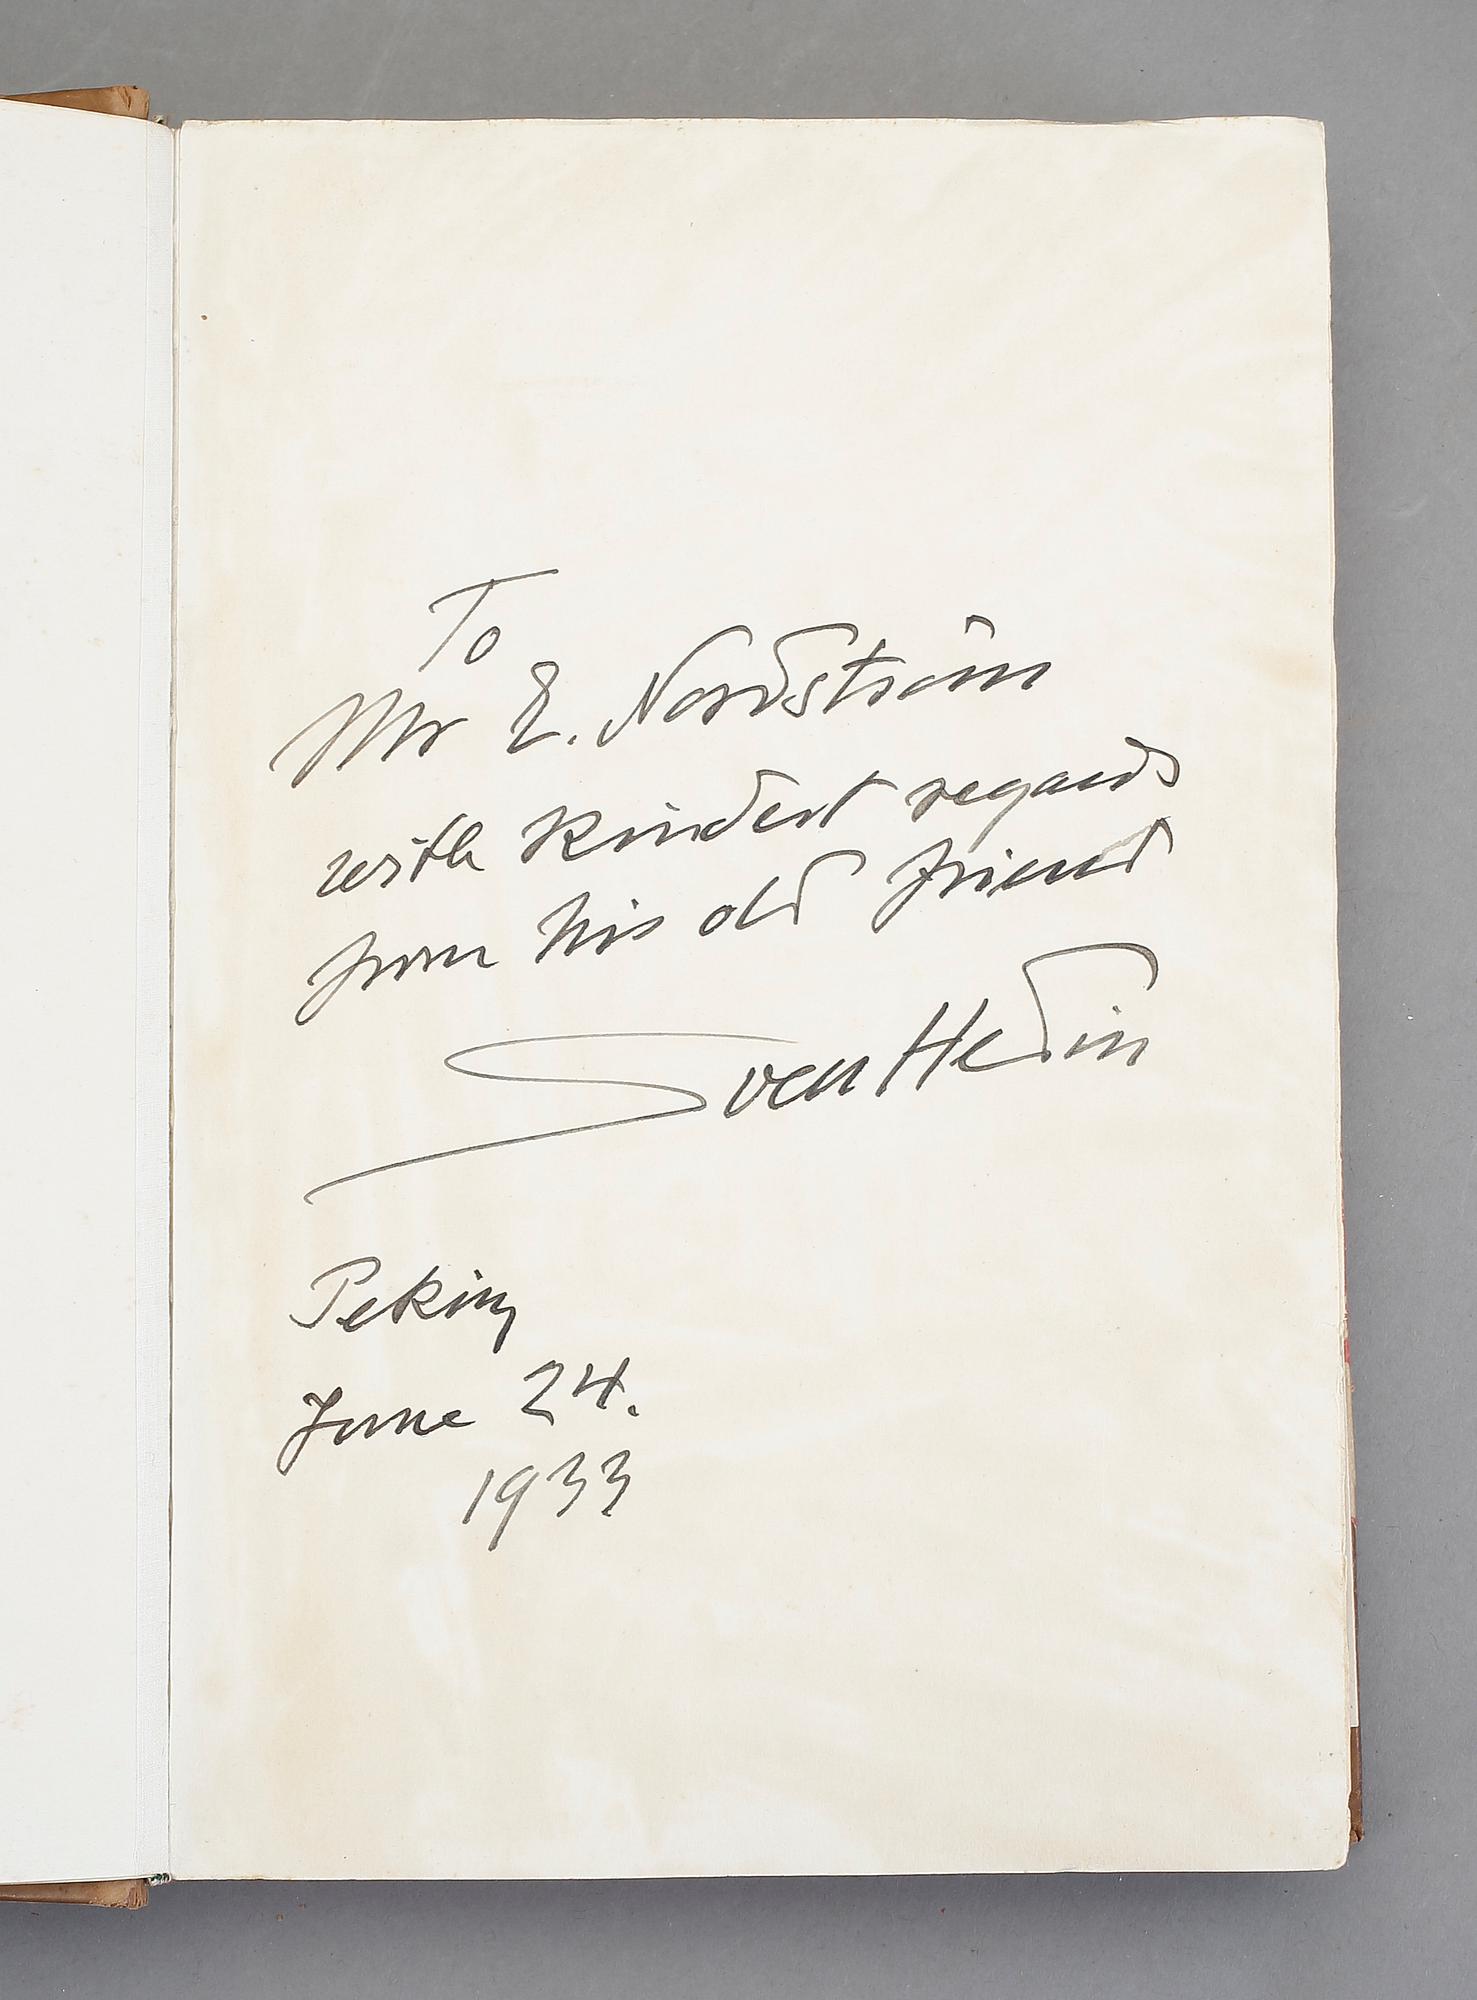 To
Mr E. Nordström
with kindest regards
from his old friend
Sven Hedin
Peking
June 24.
1933